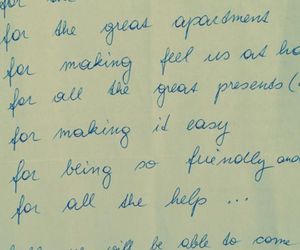 for the
for the great apartment
for making feel us at ho
for all the great presents (
for making it easy
for being so friendly and
for all the help ...
will be able to come